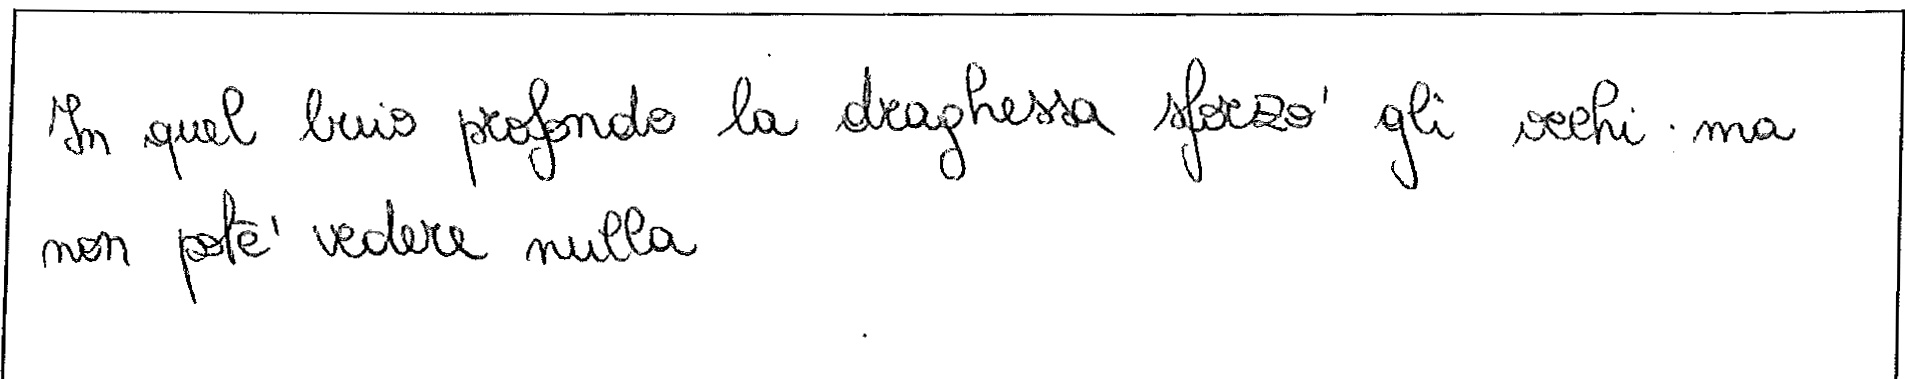 In quel buio profondo la draghessa sforzo' gli occhi. ma
non pote' vedere nulla